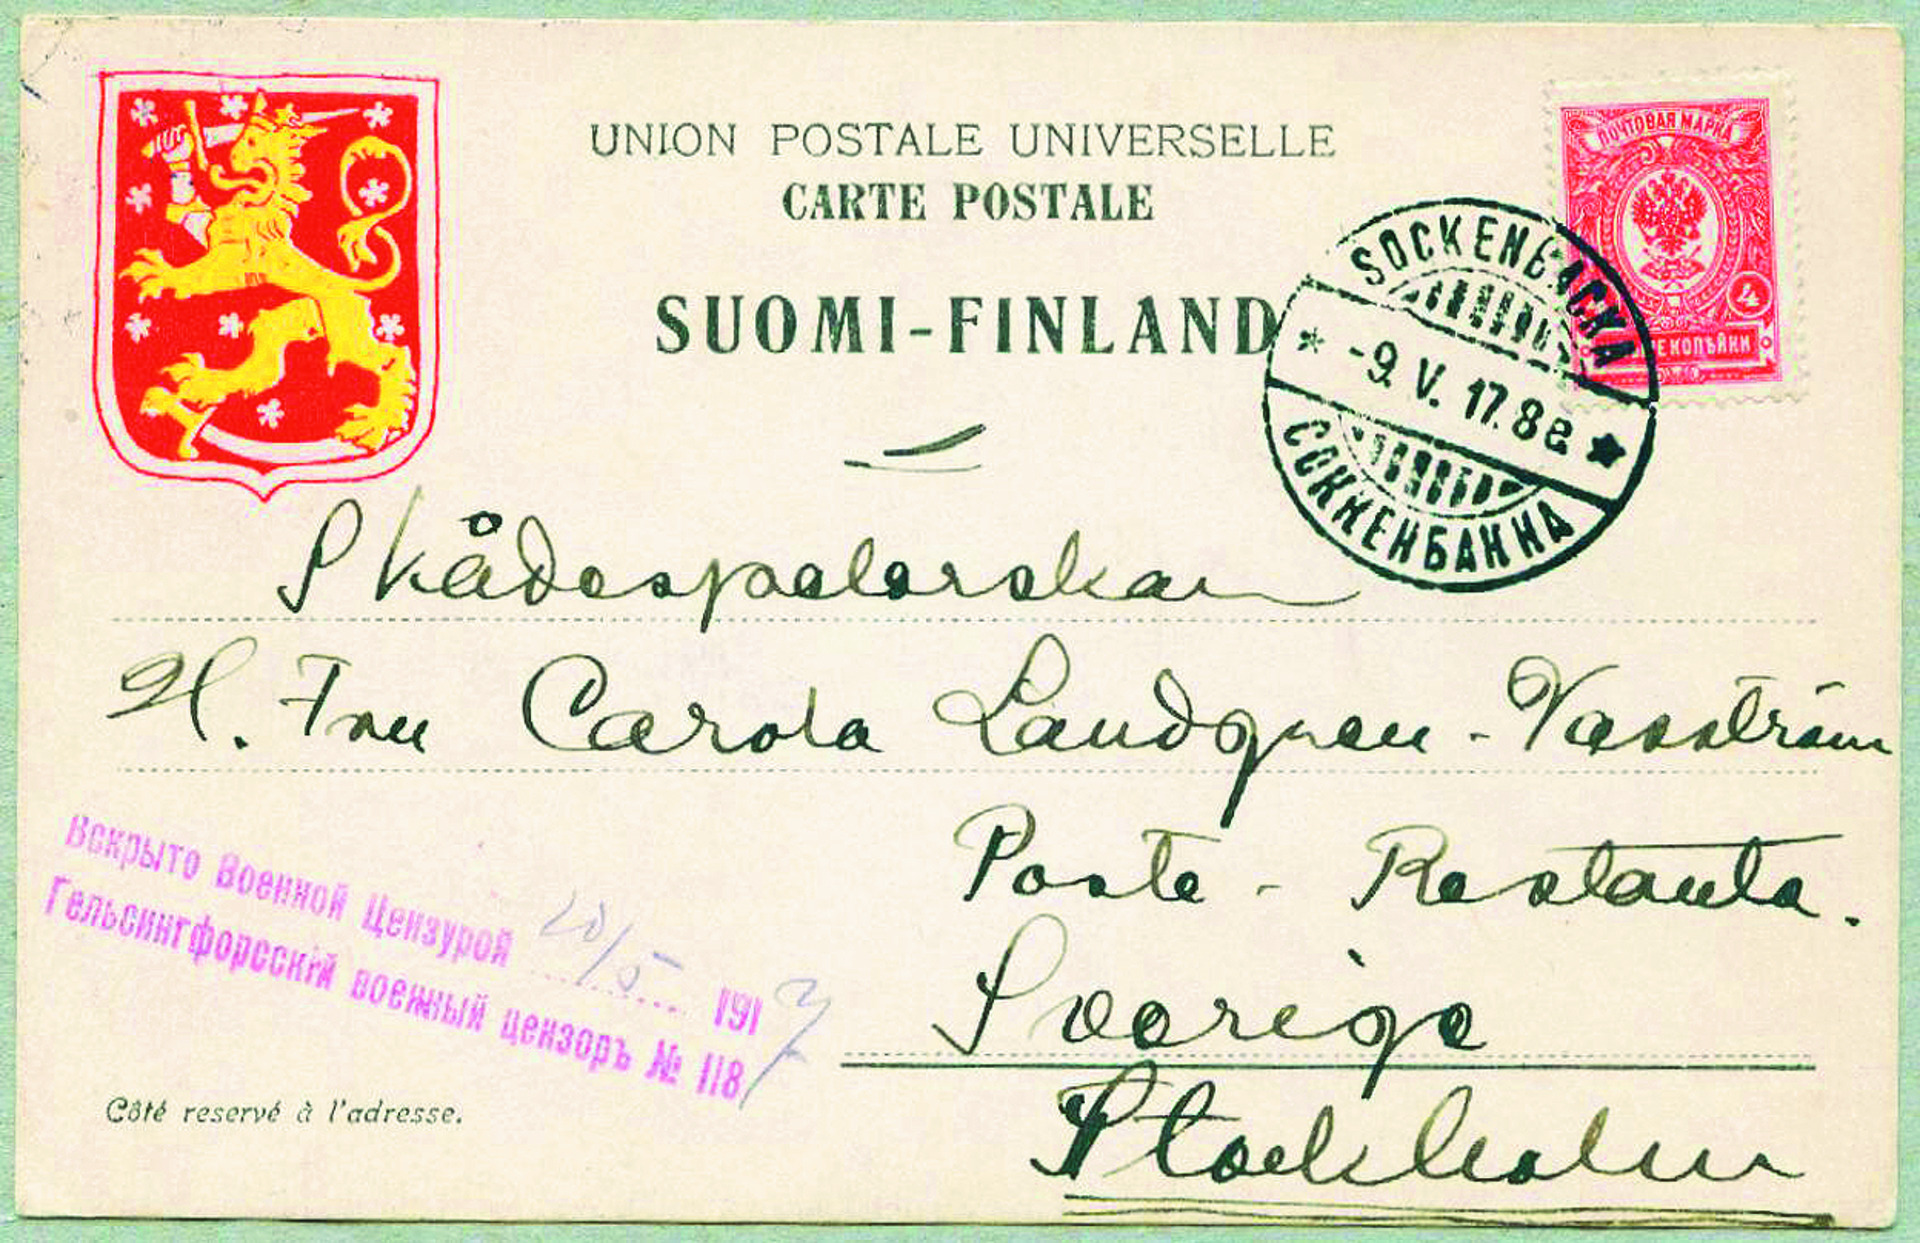 UNION POSTALE UNIVERSELLE
CARTE POSTALE
SUOMI-FINLAND
ПОЧТОВАЯ МАРКА
4
КОПѢЙКИ
SOCKENBACKA
-9.V.17.8e
СОККЕНБАККА
Skådespelerskan
H. Fru Carola Lundgren-Vasström
Poste - Restante.
Sverige
Stockholm
Вскрыто Военной Цензурой 10/5 1917
Гельсингфорсскій военный цензоръ № 118
Côté reservé à l'adresse.